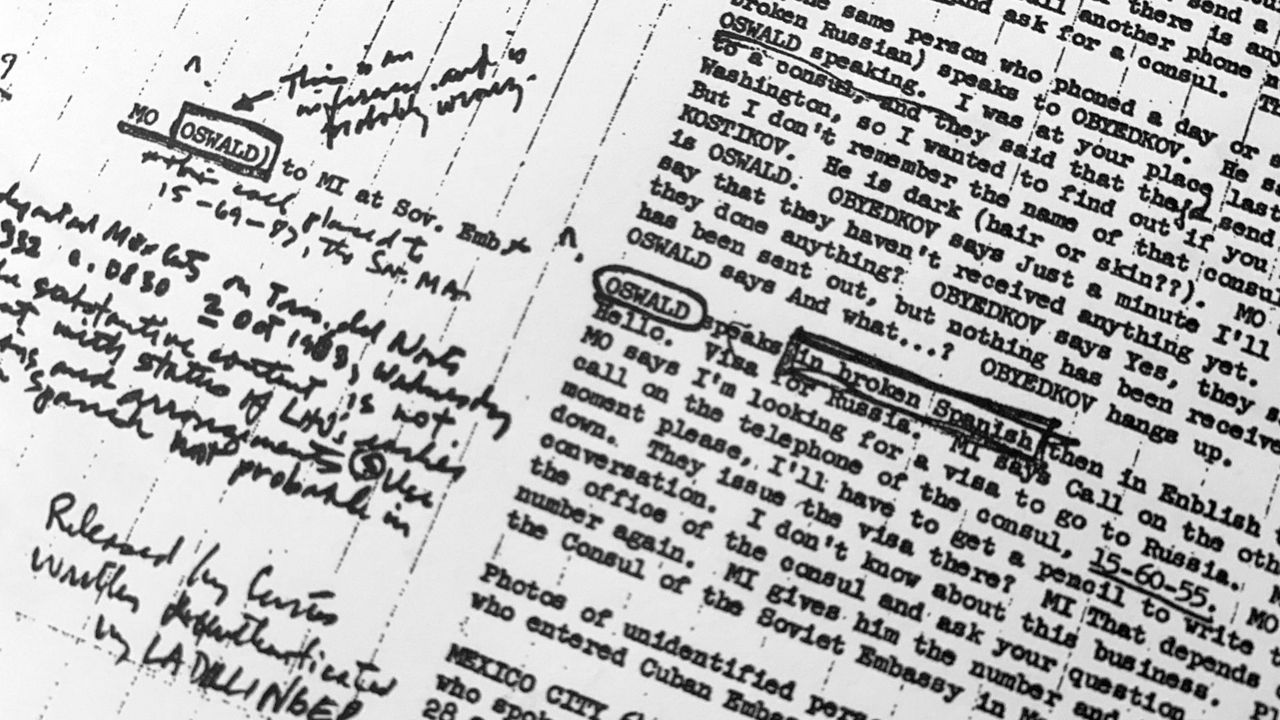 This is an
inference and is
probably wrong.
MO OSWALD) to MI at Sov. Emb
this call placed to
15-69-87, the Sov. MA
on Tues. del Norte
932 0.0830 2 Oct 1963, Wednesday
substantive content is not
with status of LHO's
arrangements Use
Spanish NOT probable in
Released by
written
by LA DILLINGER
send a
there is any
call another phone n
and ask for a consul. Th
the same person who phoned a day or s
broken Russian) speaks to OBYEDKOV. He s
OSWALD speaking. I was at your place last
to a consul, and they said that they'd send
Washington, so I wanted to find out if you
But I don't remember the name of that consul
KOSTIKOV. He is dark (hair or skin??). MO
is OSWALD. OBYEDKOV says Just a minute I'll
say that they haven't received anything yet.
they done anything? OBYEDKOV says Yes, they s
has been sent out, but nothing has been receive
OSWALD says And what...? OBYEDKOV hangs up.
OSWALD speaks in broken Spanish then in Enblish t
Hello. Visa for Russia. MI says Call on the oth
MO says I'm looking for a visa to go to Russia.
call on the telephone of the consul, 15-60-55. MO
moment please, I'll have to get a pencil to write t
down. They issue the visa there? MI That depends
conversation. I don't know about this business. Pl
the office of the consul and ask your question
number again. MI gives him the number and
the Consul of the Soviet Embassy in M
Photos of unidentified pers
who entered Cuban Embas
MEXICO CITY
who spok
28